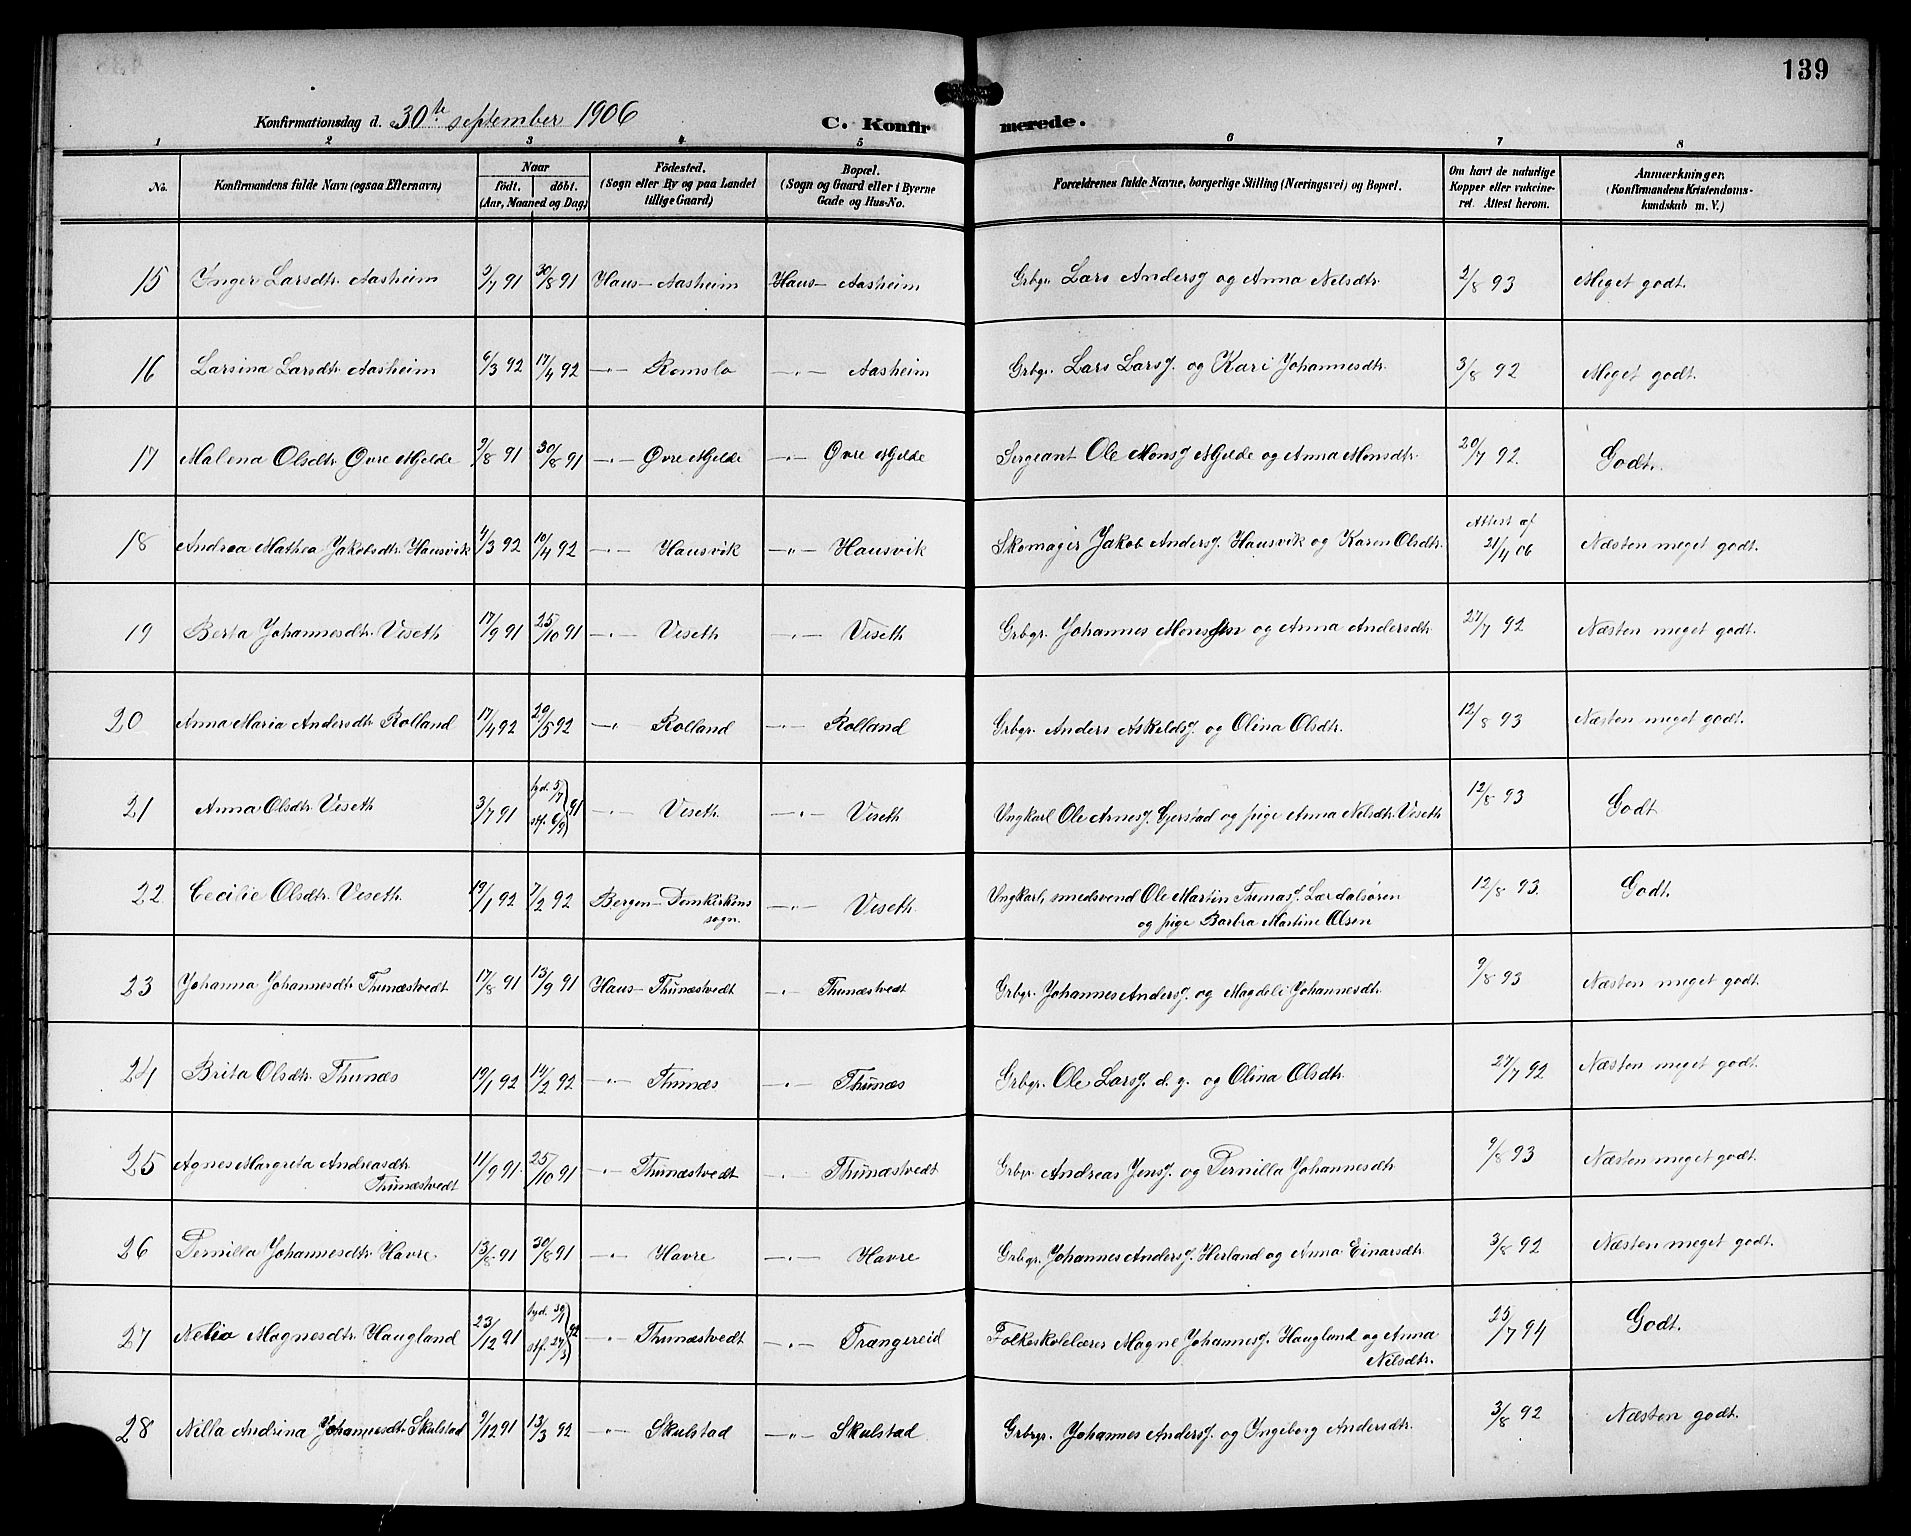 139
Konfirmationsdag d. 30te september 1906 C. Konfirmerede.
1 2 3 4 5 6 7 8
No. Konfirmandens fulde Navn (ogsaa Efternavn) Naar født. døbt. (Aar, Maaned og Dag) Fødested. (Sogn eller By og paa Landet tillige Gaard) Bopæl. (Sogn og Gaard eller i Byerne Gade og Hus-No. Forældrenes fulde Navne, borgerlige Stilling (Næringsvei) og Bopæl. Om havt de naturlige Kopper eller vakcineret. Attest herom. Anmærkninger. (Konfirmandens Kristendomskundskab m. V.)
15 Inger Larsdtr. Aasheim 5/7 91 30/8 91 Haus - Aasheim Haus - Aasheim Grbgr. Lars Andersʃ. og Anna Nelsdtr. 2/8 93 Meget godt.
16 Larsina Larsdtr. Aasheim 6/3 92 17/4 92 —"— Romslo —"— Aasheim Grbgr. Lars Larsʃ. og Kari Johannesdtr. 3/8 92 Meget godt.
17 Malena Olsdtr. Øvre Mjelde 9/8 91 30/8 91 —"— Øvre Mjelde —"— Øvre Mjelde Sergeant Ole Monsʃ. Mjelde og Anna Monsdtr. 20/7 92. Godt.
18 Andrea Mathea Jakobsdtr. Hausvik 4/3 92 10/4 92 —"— Hausvik —"— Hausvik Skomager Jakob Andersʃ. Hausvik og Karen Olsdtr. Attest af 21/4 06 Næsten meget godt.
19 Berta Johannesdtr. Viseth 17/9 91 25/10 91 —"— Viseth —"— Viseth Grbgr. Johannes Monssen og Anna Andersdtr. 27/7 92 Næsten meget godt.
20 Anna Maria Andersdtr. Rolland 17/4 92 29/5 92 —"— Rolland —"— Rolland Grbgr. Anders Askeldsʃ. og Olina Olsdtr. 12/8 93 Næsten meget godt.
21 Anna Olsdtr. Viseth 3/7 91 hjd. 5/7 stf. 6/9 } 91 —"— Viseth —"— Viseth Ungkarl Ole Arnesʃ. Gjerstad og pige Anna Nelsdtr. Viseth 12/8 93 Godt
22 Cecilie Olsdtr. Viseth 19/1 92 7/2 92 Bergen - Domkirkens sogn. —"— Viseth. Ungkarl, smedsvend Ole Martin Thomasʃ. Lærdalsøren
og pige Barbra Martine Olsen 12/8 93. Godt.
23 Johanna Johannesdtr. Thunæstvedt 17/8 91 13/9 91 Haus - Thunæstvedt —"— Thunæstvedt Grbgr. Johannes Andersʃ. og Magdeli Johannesdtr. 9/8 93 Næsten meget godt.
24 Brita Olsdtr. Thunæs 19/1 92 14/2 92 —"— Thunæs —"— Thunæs Grbgr. Ole Larsʃ. d. y. og Olina Olsdtr. 27/7 92 Næsten meget godt.
25 Agnes Margreta Andreasdtr.
Thunæstvedt 11/9 91. 25/10 91 —"— Thunæstvedt —"— Thunæstvedt Grbgr. Andreas Jensʃ. og Pernilla Johannesdtr. 9/8 93 Næsten meget godt.
26 Pernilla Johannesdtr. Havre 13/8 91 30/8 91 —"— Havre —"— Havre Grbgr. Johannes Andersʃ. Herland og Anna Einarsdtr. 3/8 92 Næsten meget godt.
27 Magnesdtr. Haugland 23/12 91 hjd. stf. 27/3 } 92 —"— Thunæstvedt —"— Trængereid Folkeskolelærer Magne Johannesʃ. Haugland og Anna
Nelsdtr. 25/7 94 Godt.
28 Nilla Andrina Johannesdtr. Skulstad 9/12 91 13/3 92 —"— Skulstad —"— Skulstad Grbgr. Johannes Andersʃ. og Ingeborg Andersdtr. 3/8 92 Næsten godt.